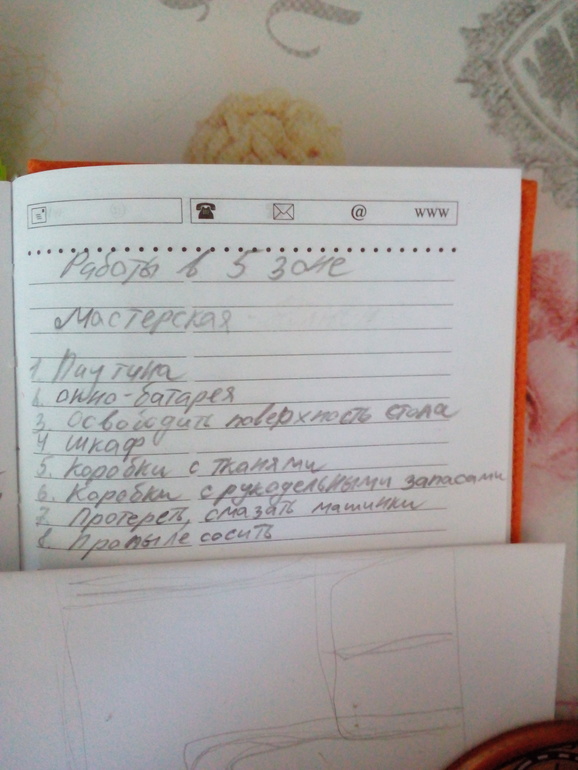 @ www
Работы в 5 зоне
Мастерская
1. Паутина
2. окно-батарея
3. Освободить поверхность стола
4 шкаф
5. Коробки с тканями
6. Коробки с рукодельными запасами
7. Протереть, смазать машинки
8. Пропылесосить